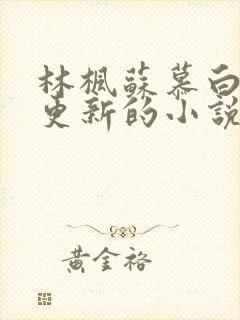 林楓蘇慕白
更新的小說
黃金裕